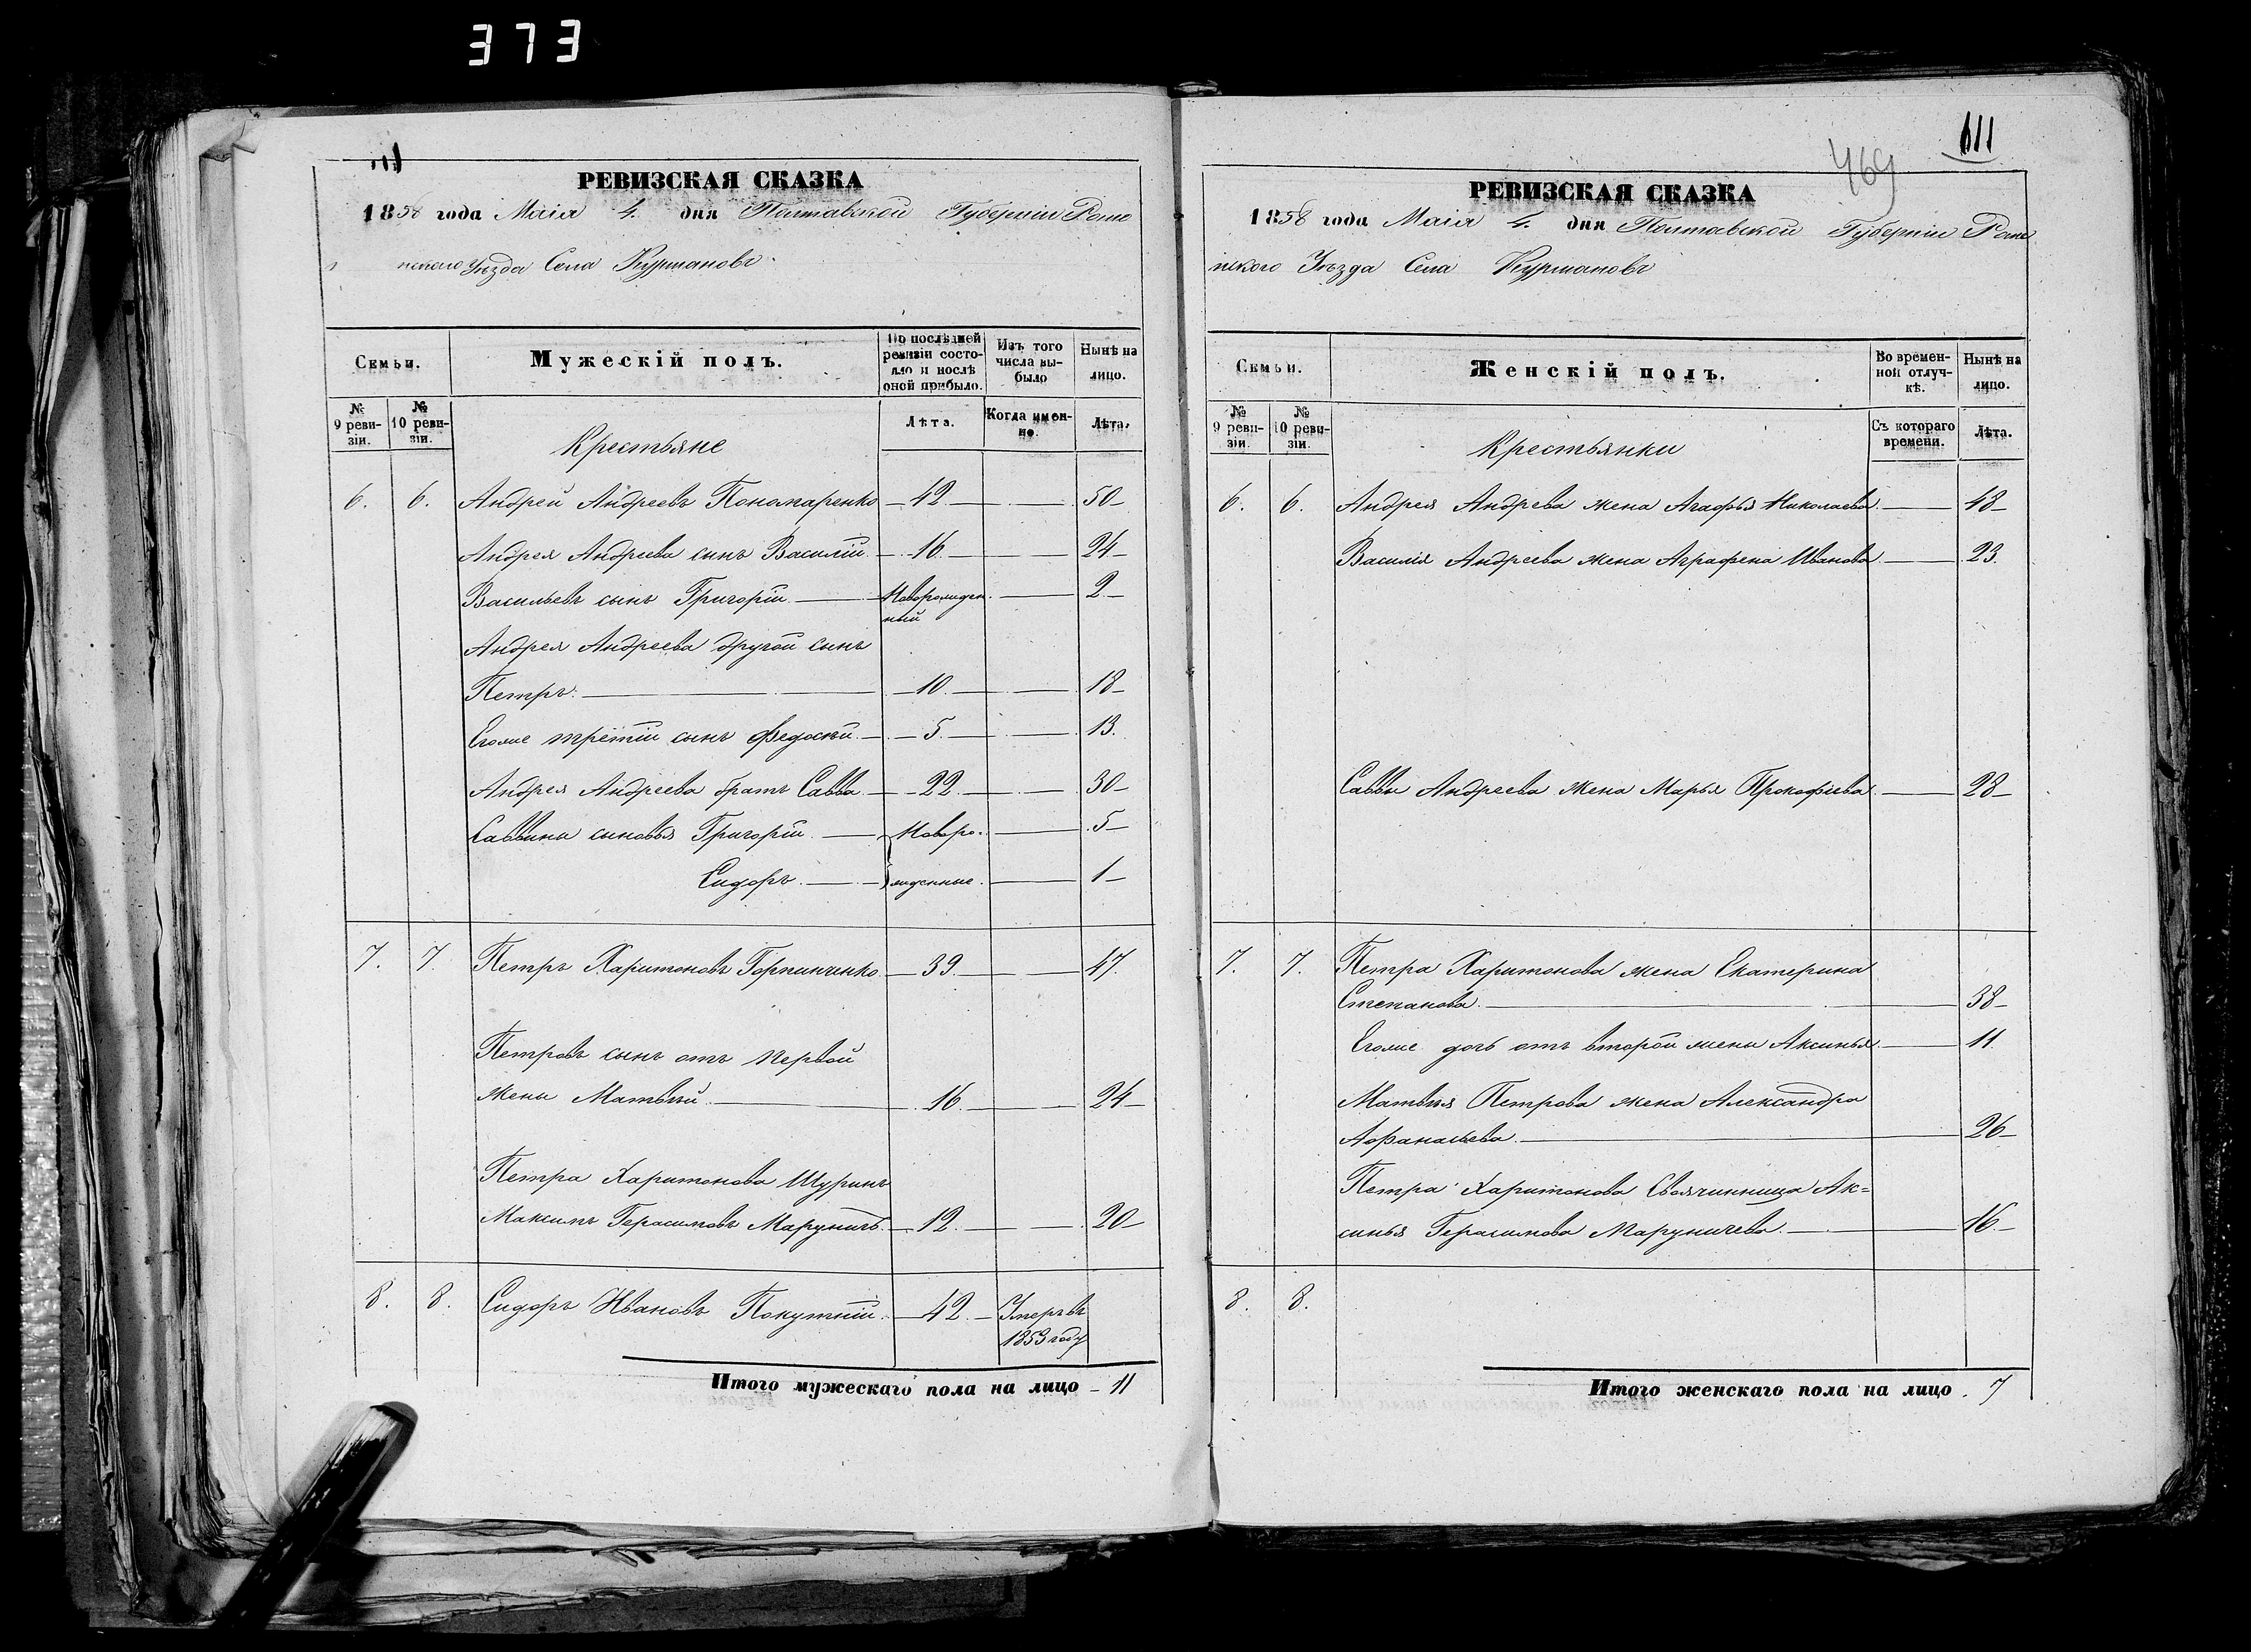 373
111
РЕВИЗСКАЯ СКАЗКА
1858 года Маія 4. дня Полтавской Губерніи Роме
нского Уѣзда Села Курмановъ
Семьи.
Мужескій полъ.
По послѣдней ревизіи состояло и послѣ оной прибыло.
Изъ того числа вы-было
Нынѣ на лицо.
№ 9 реви-зіи.
№ 10 реви-зіи.
Лѣта.
Когда имен-но.
Лѣта.
Крестьяне
6. 6. Андрей Андреевъ Пономаренко 42 50
Андрея Андреева сынъ Василій 16 24
Васильевъ сынъ Григорій Новорожден 2
ный
Андрея Андреева другой сынъ
Петръ 10 18
Егоже третій сынъ Федосѣй 5 13.
Андрея Андреева братъ Савва 22 30
Саввины сыновья Григорій Новоро- 5
Сидоръ жденные 1
7. 7. Петръ Харитоновъ Горпинченко 39 47.
Петровъ сынъ отъ первой
жены Матвѣй 16 24
Петра Харитонова Шуринъ
Максимъ Герасимовъ Маруничъ 12 20
8. 8. Сидоръ Ивановъ Покутній 42 Умеръ въ
1853 году
Итого мужескаго пола на лицо 11
469
111
РЕВИЗСКАЯ СКАЗКА
1858 года Маія 4. дня Полтавской Губерніи Роме
нского Уѣзда Села Курмановъ
Семьи.
Женскій полъ.
Во времен-ной отлуч-кѣ.
Нынѣ на лицо.
№ 9 реви-зіи.
№ 10 реви-зіи.
Съ котораго времени.
Лѣта.
Крестьянки
6. 6. Андрея Андреева жена Агафья Николаева 48
Василія Андреева жена Аграфена Иванова 23.
Саввы Андреева жена Марья Прокофіева 28
7. 7. Петра Харитонова жена Екатерина
Степанова 38
Егоже дочь отъ второй жены Аксинья 11
Матвѣя Петрова жена Александра
Афанасьева 26
Петра Харитонова Своячинница Ак=
синья Герасимова Маруничева 16
8. 8.
Итого женскаго пола на лицо 7